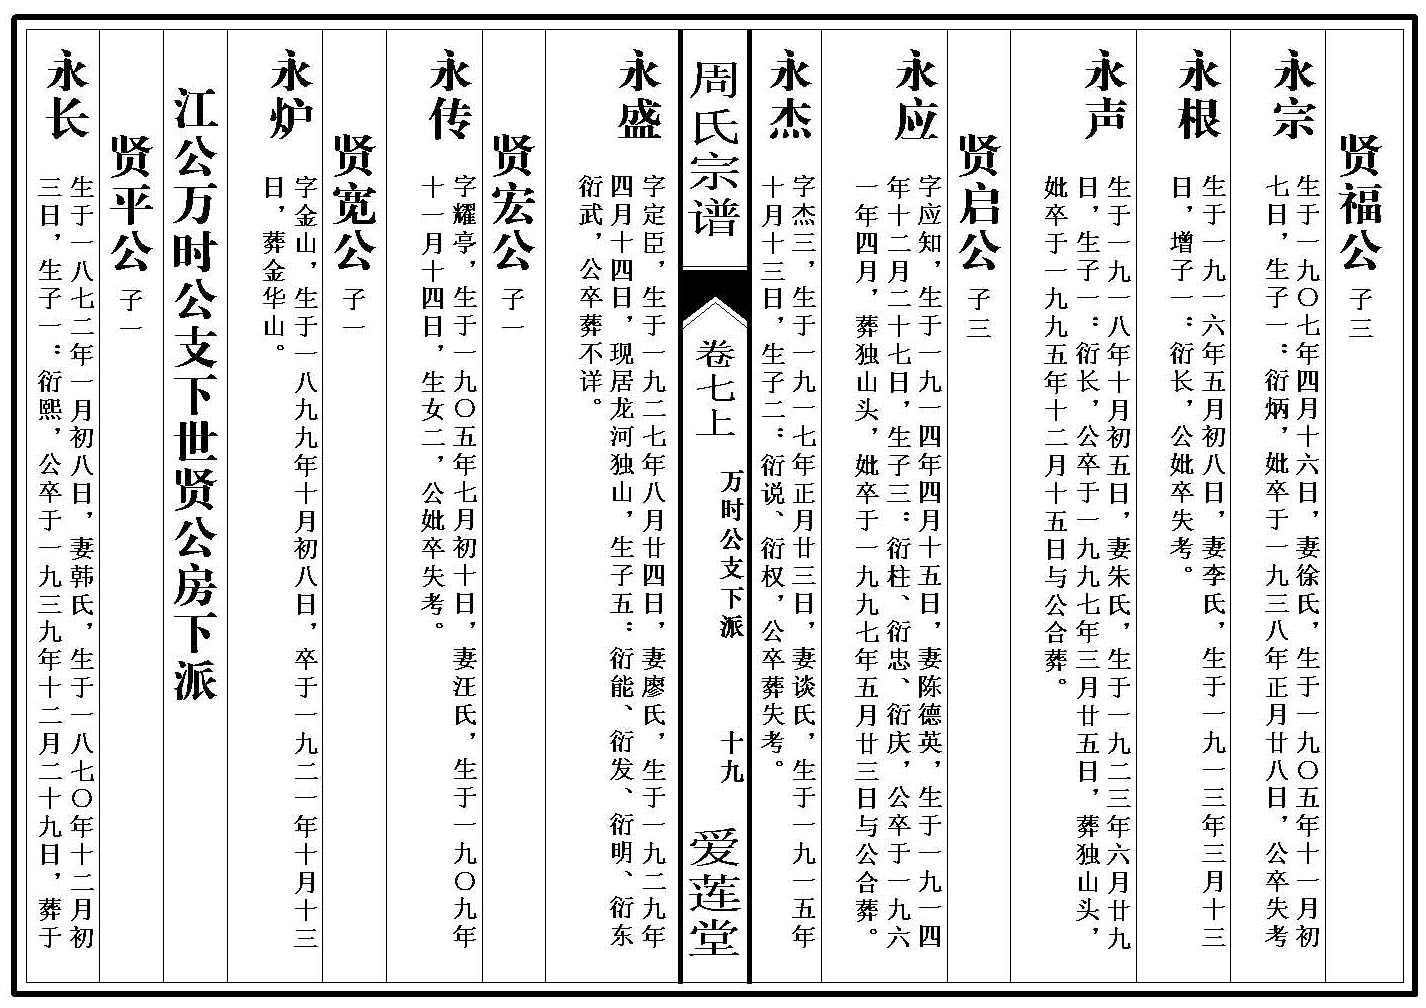 贤福公 子三
永宗
生于一九〇七年四月十六日，妻徐氏，生于一九〇五年十一月初
七日，生子一：衍炳，妣卒于一九三八年正月廿八日，公卒失考
永根
生于一九一六年五月初八日，妻李氏，生于一九一三年三月十三
日，增子一：衍长，公妣卒失考。
永声
生于一九一八年十月初五日，妻朱氏，生于一九二三年六月廿九
日，生子一：衍长，公卒于一九九七年三月廿五日，葬独山头，
妣卒于一九九五年十二月十五日与公合葬。
贤启公 子三
永应
字应知，生于一九一四年四月十五日，妻陈德英，生于一九一四
年十二月二十七日，生子三：衍柱、衍忠、衍庆，公卒于一九六
一年四月，葬独山头，妣卒于一九九七年五月廿三日与公合葬。
永杰
字杰三，生于一九一七年正月廿三日，妻谈氏，生于一九一五年
十月十三日，生子二：衍说、衍权，公卒葬失考。
周氏宗谱
卷七上
万时公支下派
十九
爱莲堂
永盛
字定臣，生于一九二七年八月廿四日，妻廖氏，生于一九二九年
四月十四日，现居龙河独山，生子五：衍能、衍发、衍明、衍东
衍武，公卒葬不详。
贤宏公 子一
永传
字耀亭，生于一九〇五年七月初十日，妻汪氏，生于一九〇九年
十一月十四日，生女二，公妣卒失考。
贤宽公 子一
永炉
字金山，生于一八九九年十月初八日，卒于一九二一年十月十三
日，葬金华山。
江公万时公支下世贤公房下派
贤平公 子一
永长
生于一八七二年一月初八日，妻韩氏，生于一八七〇年十二月初
三日，生子一：衍熙，公卒于一九三九年十二月二十九日，葬于